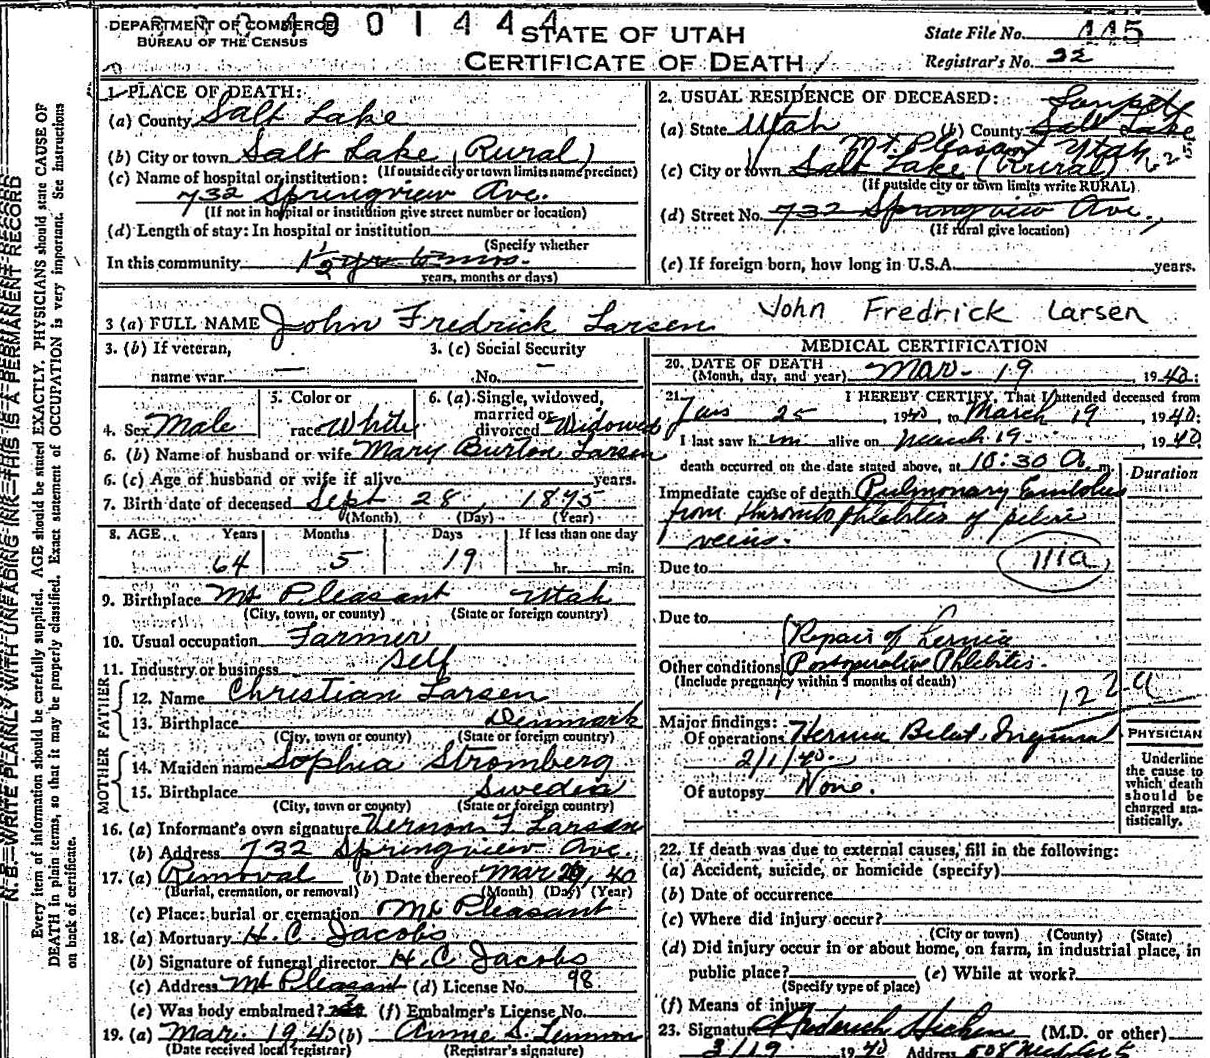 DEPARTMENT OF COMMERCE
BUREAU OF THE CENSUS
4001444
STATE OF UTAH
CERTIFICATE OF DEATH
State File No. 445
Registrar's No. 22
N. B.—WRITE PLAINLY WITH UNFADING INK—THIS IS A PERMANENT RECORD
Every item of information should be carefully supplied. AGE should be stated EXACTLY. PHYSICIANS should state CAUSE OF
DEATH in plain terms, so that it may be properly classified. Exact statement of OCCUPATION is very important. See instructions
on back of certificate.
1. PLACE OF DEATH:
(a) County Salt Lake
(b) City or town Salt Lake (Rural)
(If outside city or town limits name precinct)
(c) Name of hospital or institution:
732 Springview Ave.
(If not in hospital or institution give street number or location)
(d) Length of stay: In hospital or institution
(Specify whether
In this community
years, months or days)
2. USUAL RESIDENCE OF DECEASED:
Sanpete
(a) State Utah (b) County Salt Lake
Mt. Pleasant Utah
(c) City or town Salt Lake (Rural)
(If outside city or town limits write RURAL)
(d) Street No. 732 Springview Ave.
(If rural give location)
(e) If foreign born, how long in U.S.A. years.
3 (a) FULL NAME John Fredrick Larsen
John Fredrick Larsen
3. (b) If veteran,
name war. —
3. (c) Social Security
No. —
4. Sex Male
5. Color or
race White
6. (a) Single, widowed,
married or
divorced Widowed
6. (b) Name of husband or wife Mary Burton Larsen
6. (c) Age of husband or wife if alive years.
7. Birth date of deceased Sept 28, 1875
(Month) (Day) (Year)
8. AGE Years Months Days If less than one day
64 5 19 hr. min.
9. Birthplace Mt Pleasant Utah
(City, town, or county) (State or foreign country)
10. Usual occupation Farmer
11. Industry or business Self
FATHER
12. Name Christian Larsen
13. Birthplace Denmark
(City, town or county) (State or foreign country)
MOTHER
14. Maiden name Sophia Stromberg
15. Birthplace Sweden
(City, town or county) (State or foreign country)
16. (a) Informant's own signature Vernon F. Larsen
(b) Address 732 Springview Ave.
17. (a) Removal (b) Date thereof Mar 40
(Burial, cremation, or removal) (Month) (Day) (Year)
(c) Place: burial or cremation Mt Pleasant
18. (a) Mortuary H. C. Jacobs
(b) Signature of funeral director H. C. Jacobs
(c) Address Mt Pleasant (d) License No. 98
(e) Was body embalmed? (f) Embalmer's License No.
19. (a) Mar. 19 40 (b) Annie S. Lennon
(Date received local registrar) (Registrar's signature)
MEDICAL CERTIFICATION
20. DATE OF DEATH
(Month, day, and year) Mar - 19 1940:
21. I HEREBY CERTIFY, That I attended deceased from
Jan 25, 1940, to March 19, 1940:
I last saw him alive on March 19, 1940
death occurred on the date stated above, at 10:30 A. m.
Duration
Immediate cause of death Pulmonary Embolus
from thrombophlebitis of pelvic
veins.
Due to
111a
Due to
Repair of hernia
Other conditions Postoperative Phlebitis.
(Include pregnancy within 3 months of death)
122a
Major findings:
Of operations Hernia Bilat. Inguinal
2/1/40.
Of autopsy None.
PHYSICIAN
Underline
the cause to
which death
should be
charged sta-
tistically.
22. If death was due to external causes, fill in the following:
(a) Accident, suicide, or homicide (specify)
(b) Date of occurrence
(c) Where did injury occur?
(City or town) (County) (State)
(d) Did injury occur in or about home, on farm, in industrial place, in
public place? (e) While at work?
(Specify type of place)
(f) Means of injury
23. Signature (M.D. or other)
3/19 1940 Address 508